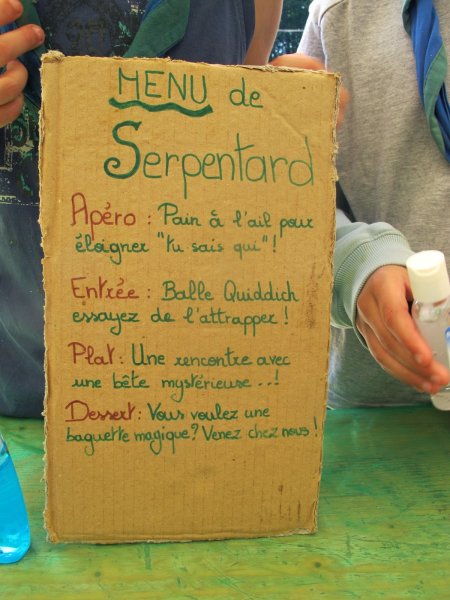 MENU de
Serpentard
Apéro : Pain à l'ail pour
éloigner "tu sais qui"!
Entrée : Balle Quiddich
essayez de l'attrapper!
Plat : Une rencontre avec
une bête mystérieuse...!
Dessert : Vous voulez une
baguette magique? Venez chez nous!